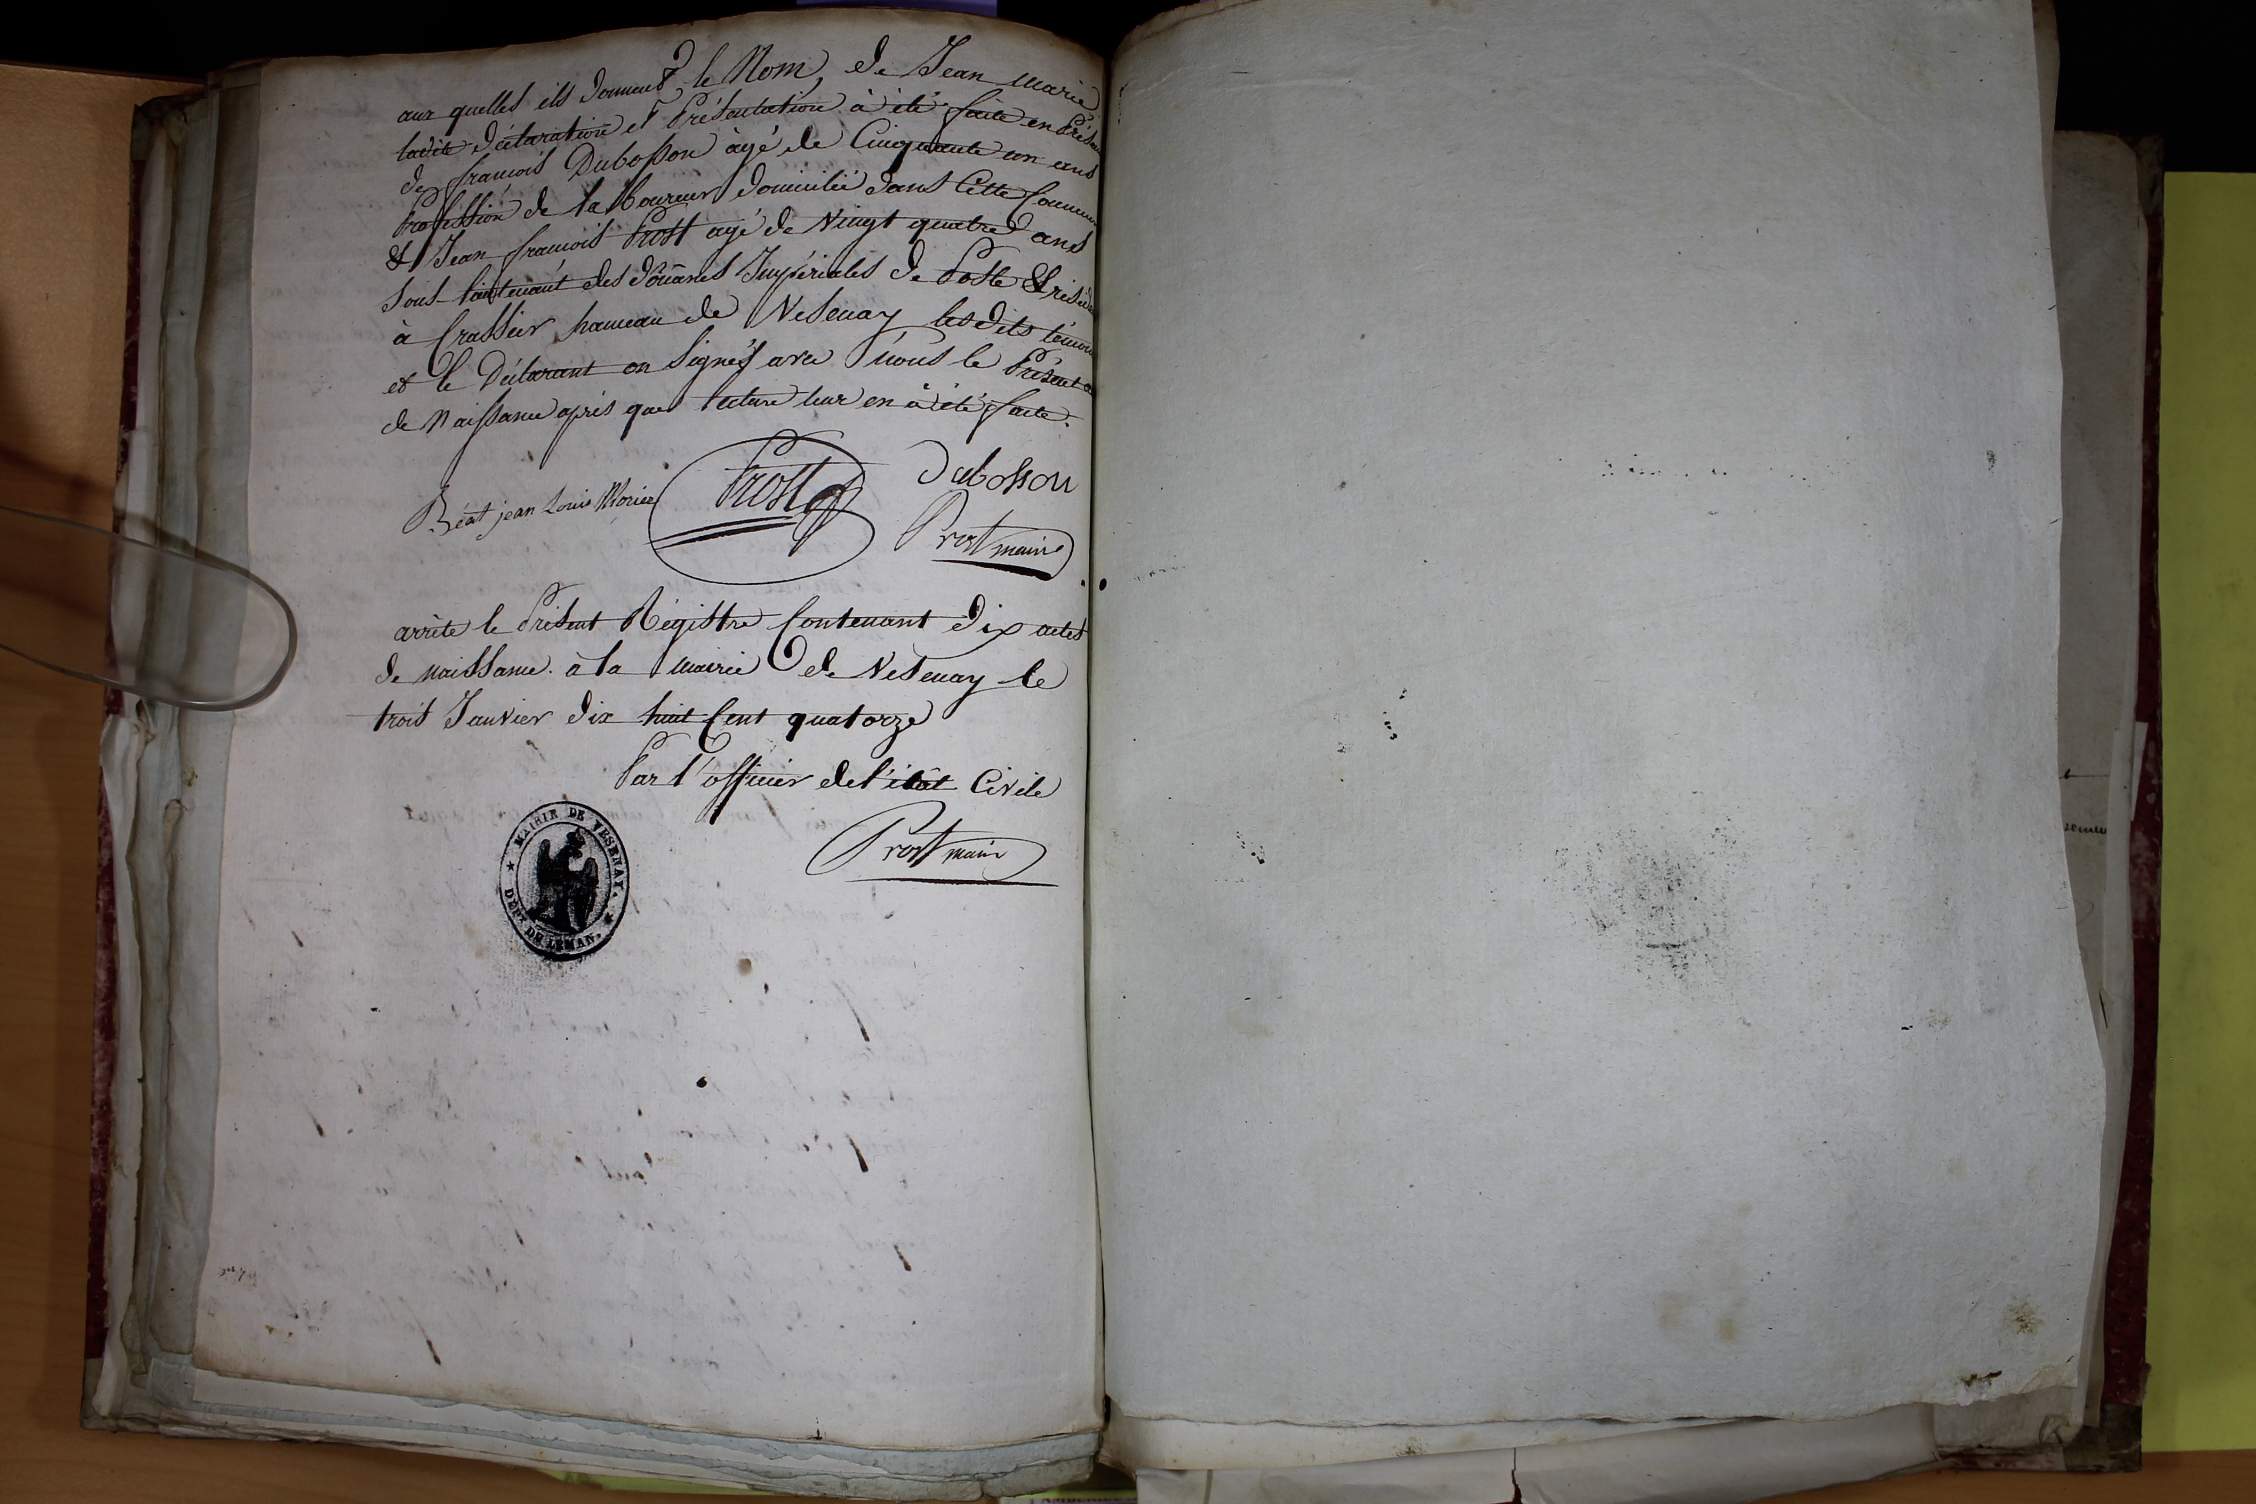 aux quelles ils donnent le Nom, de Jean Marie
ladite déclaration et Présentation à été faite en Présen
de françois Dubosson âgé de Cinquante un ans
Profession de laboureur domicilié dans Cette Commune
& Jean françois Prost agé de Vingt quatre ans
sous lieutenant des doüanes Impériales de Poste & resid
à Crassier hameau de Vesenay lesdits témoins
et le Déclarant on Signés avec nous le Présent a
de Naissance aprés que lecture leur en à été faite.
Béat jean Louis Morier
Prost
dubosson
Prost maire
arrêté le Présent Régistre Contenant dix actes
de naissance à la mairie de Vesenay le
trois Janvier dix huit Cent quatorze
Par l'officier de l'étât Civile
Prost maire
MAIRIE DE VESENAY.
DEPT. DU LEMAN.